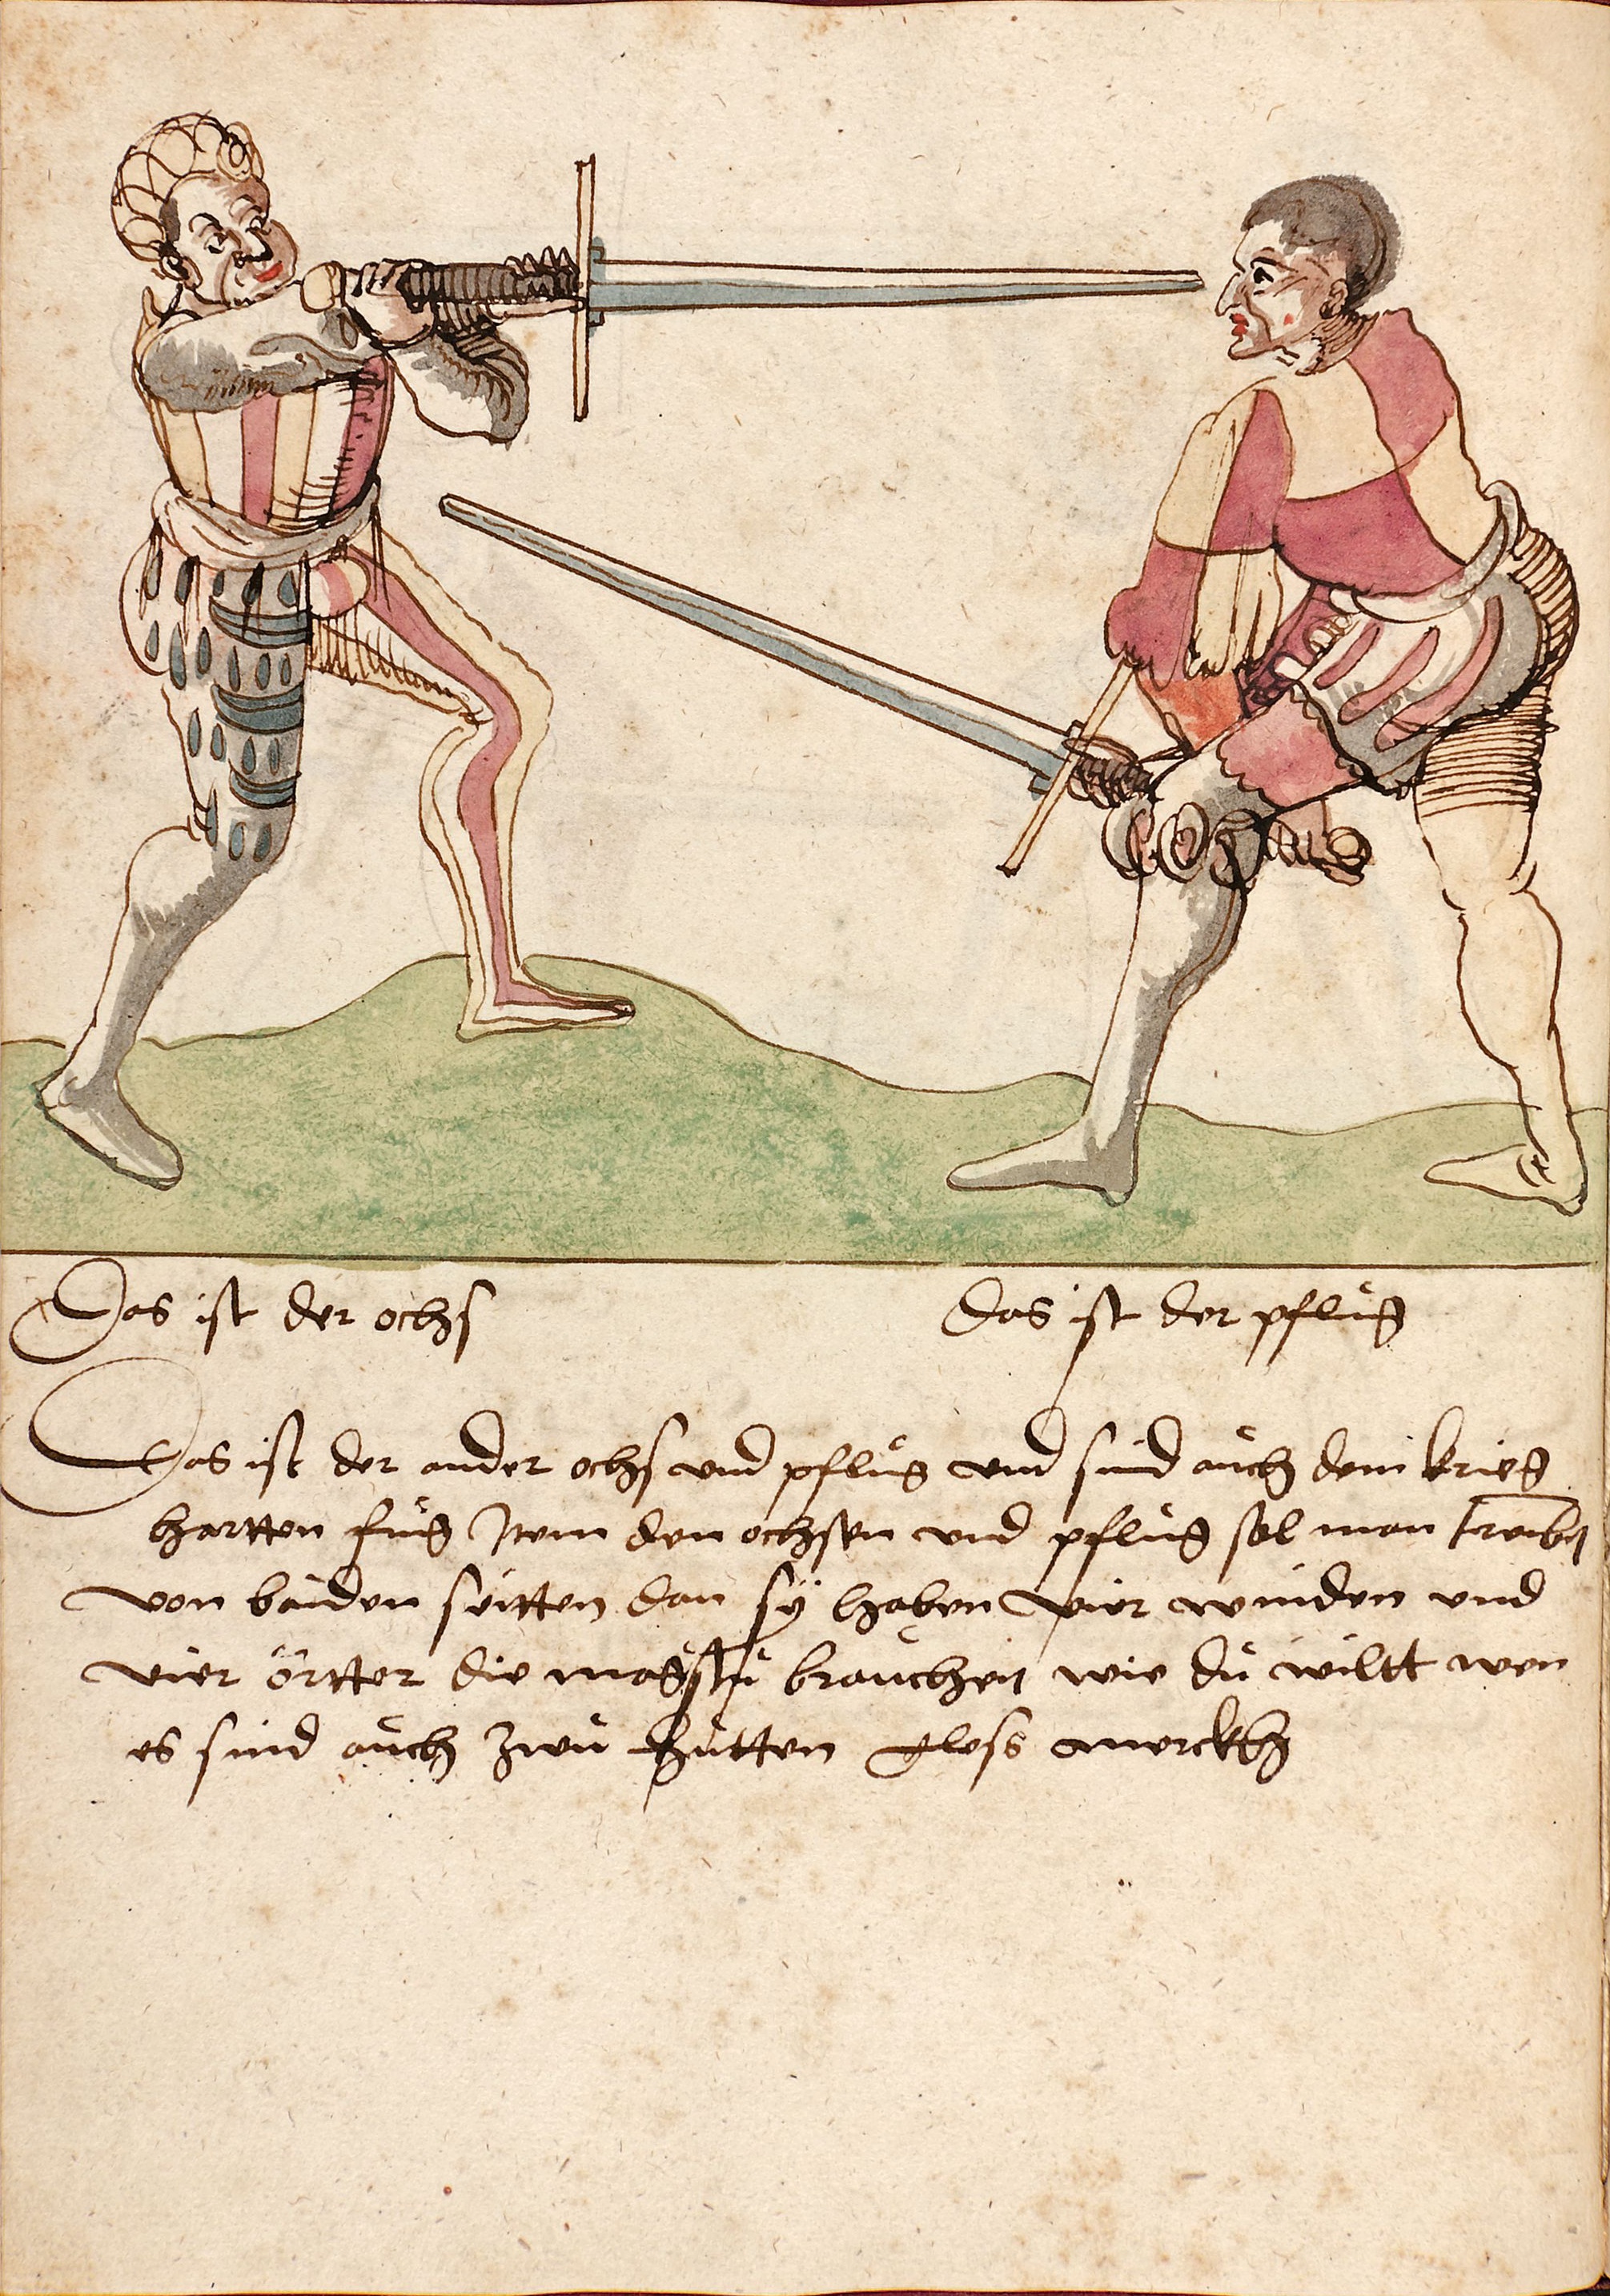 Das ist der ochs
das ist der pflůg
Das ist der ander ochs vnd pflůg vnd sind aůch dem krieg
hartten fůg Item den ochsen vnd pflůg sol man treibñ
von baiden seitten dan sÿ haben vier winden vnd
vier örtter die magstů braůchen wie dů wiltt wen
es sind aůch zwů hůtten gloss merckh